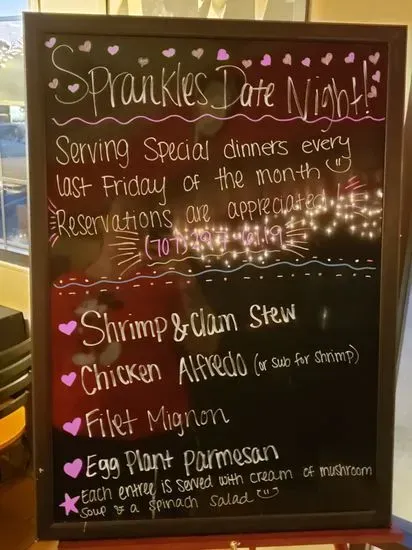 Sprankles Date Night!
Serving Special dinners every
last Friday of the month
Reservations are appreciated!
(707)
Shrimp & Clam Stew
Chicken Alfredo (or sub for shrimp)
Filet Mignon
Egg Plant Parmesan
Each entree is served with cream of mushroom
soup & a spinach salad